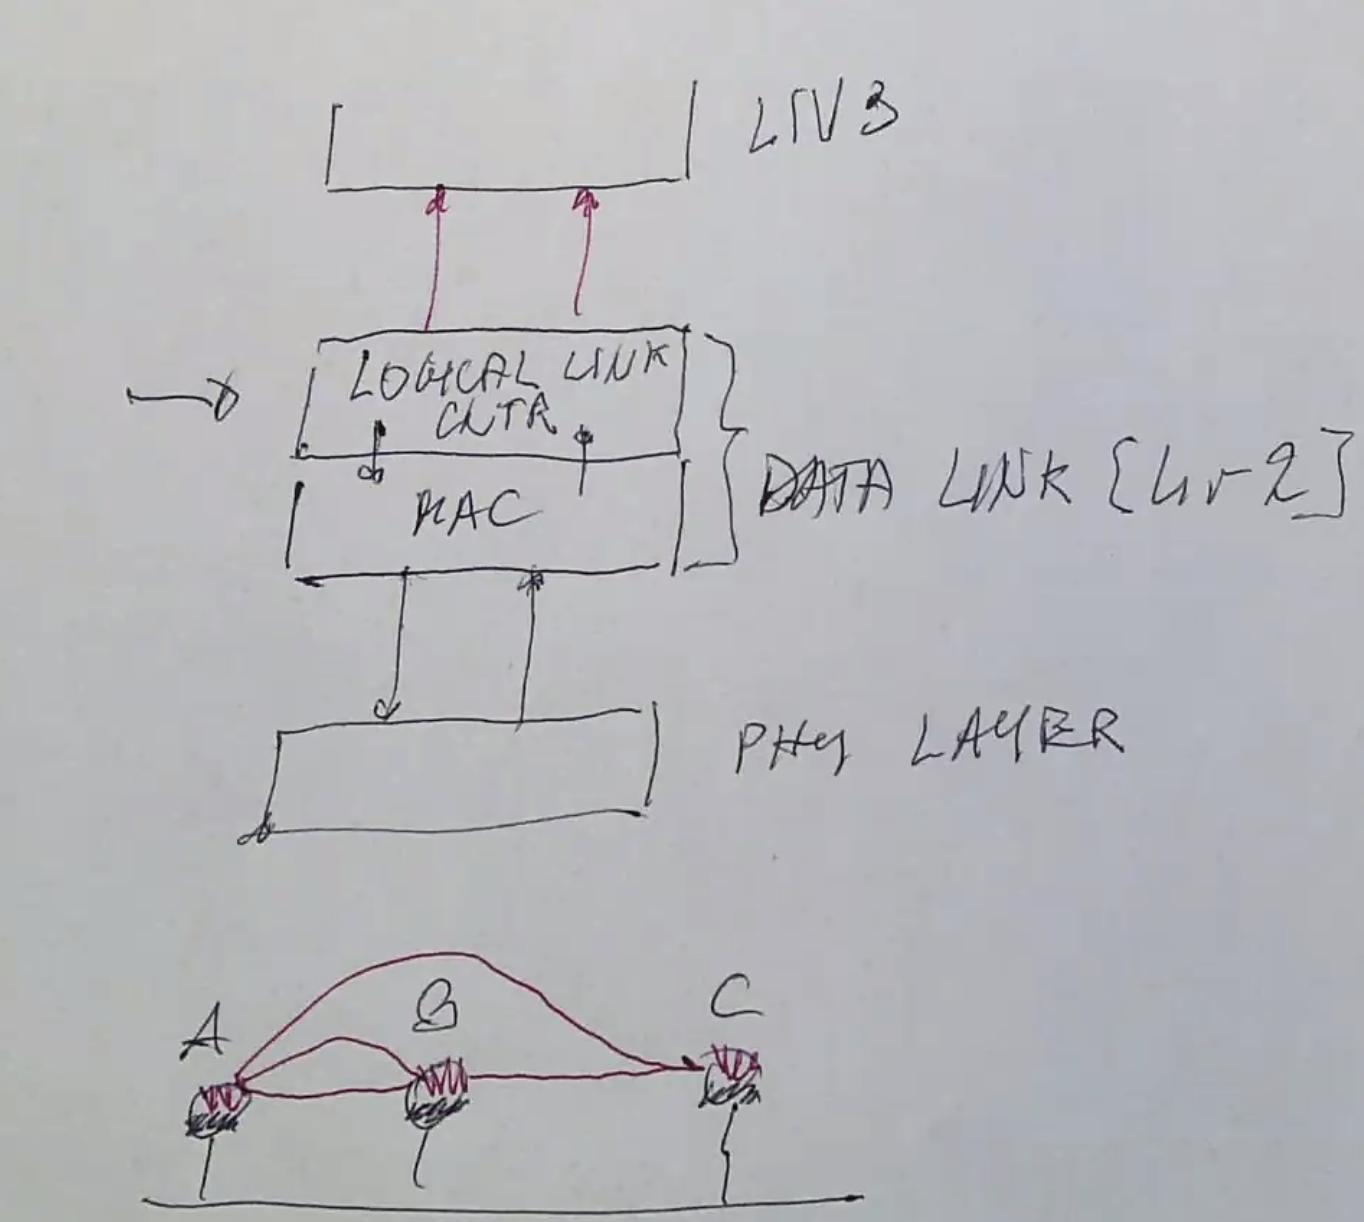 LIV 3
LOGICAL LINK
CNTR
MAC
DATA LINK [Liv 2]
PHY LAYER
A B C